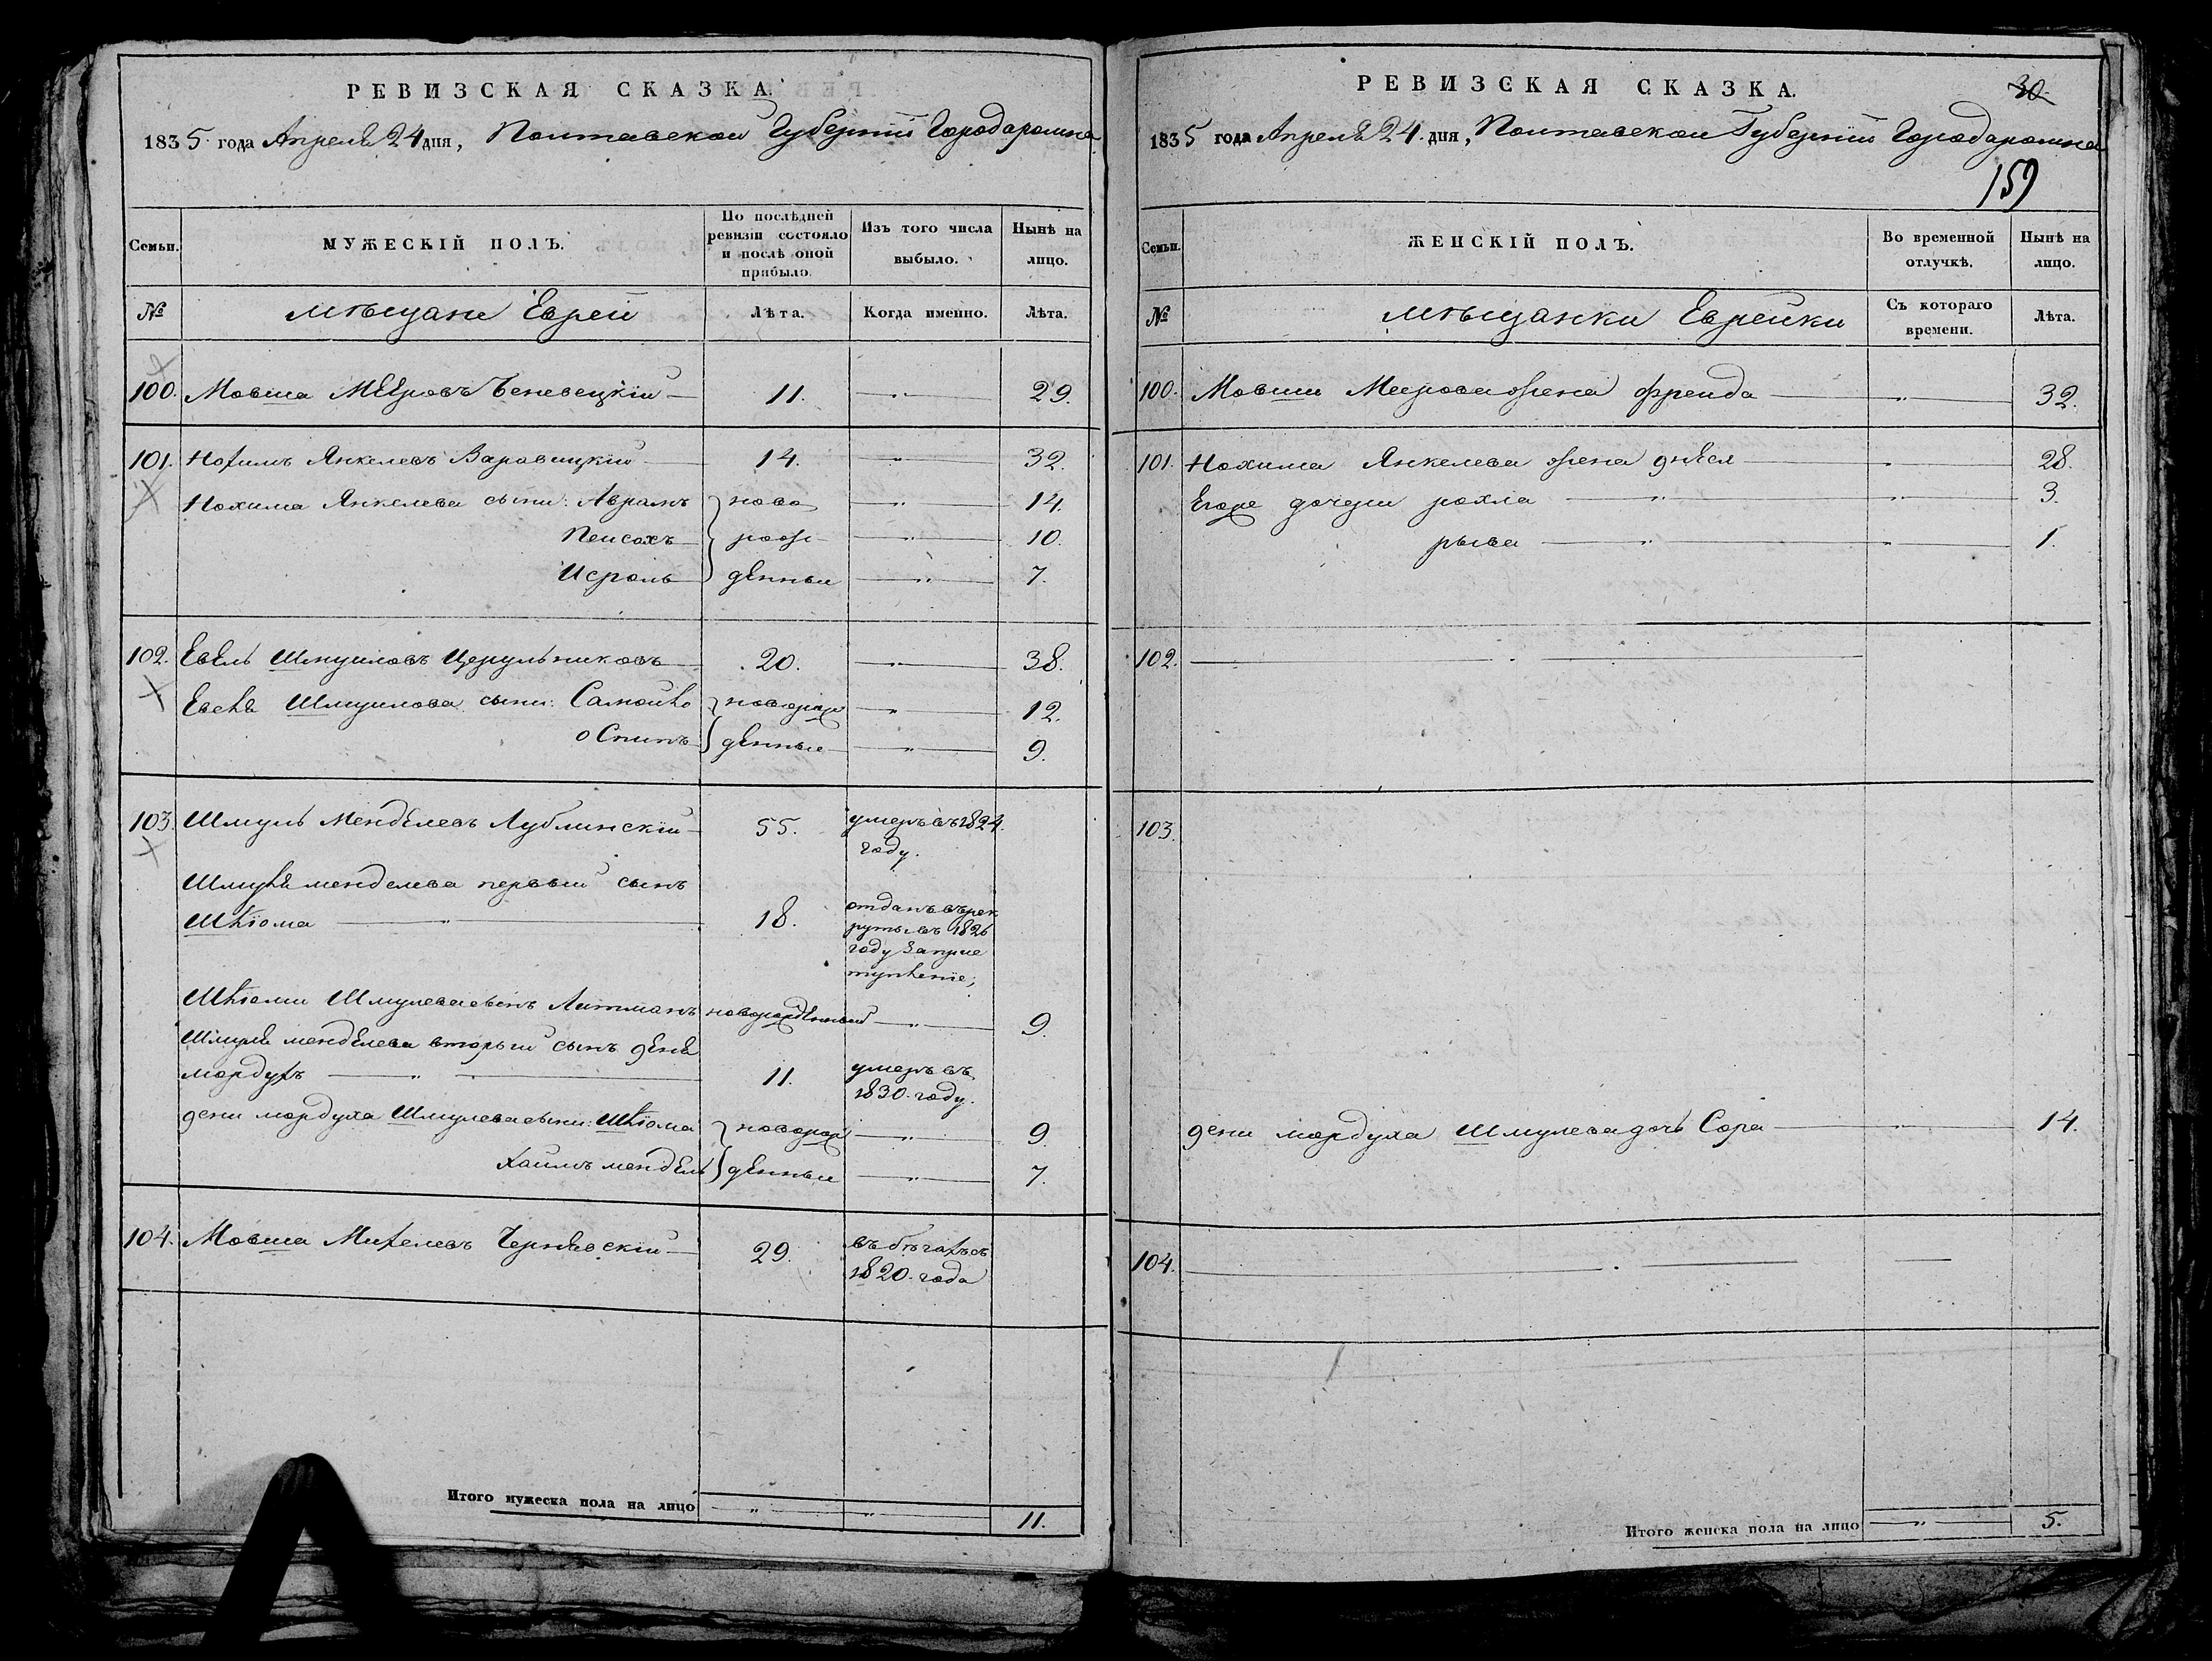 РЕВИЗСКАЯ СКАЗКА.
1835 года Апреля 24 дня, Полтавской Губернии Города ромна
Семьи.
МУЖЕСКІЙ ПОЛЪ.
По послѣдней ревизіи состояло и послѣ оной прибыло.
Изъ того числа выбыло.
Нынѣ на лицо.
№
мѣщане Евреи
Лѣта.
Когда именно.
Лѣта.
100. Мовша Мееровъ 11. 29.
101. Нохимъ Янкелевъ Варавицкій 14. 32.
Нохима Янкелева сыны: Аврамъ ново 14.
Пейсахъ рож 10.
Исроль денныи 7.
102. Евель Шмуиловъ Церульниковъ 20. 38.
Евеля Шмуилова сыны: Самойло новорож 12.
Осипъ денные 9.
103. Шмуль Менделевъ Лублинскій 55. умеръ въ 1824.
году.
Шмуля менделева первый сынъ
Шліома 18. отданъ въ рек
руты въ 1826
году за прес
тупленіе;
Шліоми Шмулева сынъ Литманъ новорожденный 9.
Шмуля менделева вторый сынъ деня
мордухъ 11. умеръ въ
1830. году.
дени мордуха Шмулева сыны: Шліома новорож 9.
Хаимъ мендель денныи 7.
104. Мовша Михелевъ Чернявскій 29. въ бѣгахъ съ
1820. года
Итого мужеска пола на лицо 11.
РЕВИЗСКАЯ СКАЗКА.
30
1835 года Апреля 24. дня, Полтавской Губерніи Города ромна
159
Семьи.
ЖЕНСКІЙ ПОЛЪ.
Во временной отлучкѣ.
Нынѣ на лицо.
№
мѣщанки Еврейки
Съ котораго времени.
Лѣта.
100. Мовши Меерова жена фрейда 32.
101. Нохима Янкелева жена 28.
Егоже дочери рохля 3.
рыва 1.
102.
103.
дени мордуха Шмулева дочь Сора 14.
104.
Итого женска пола на лицо 5.